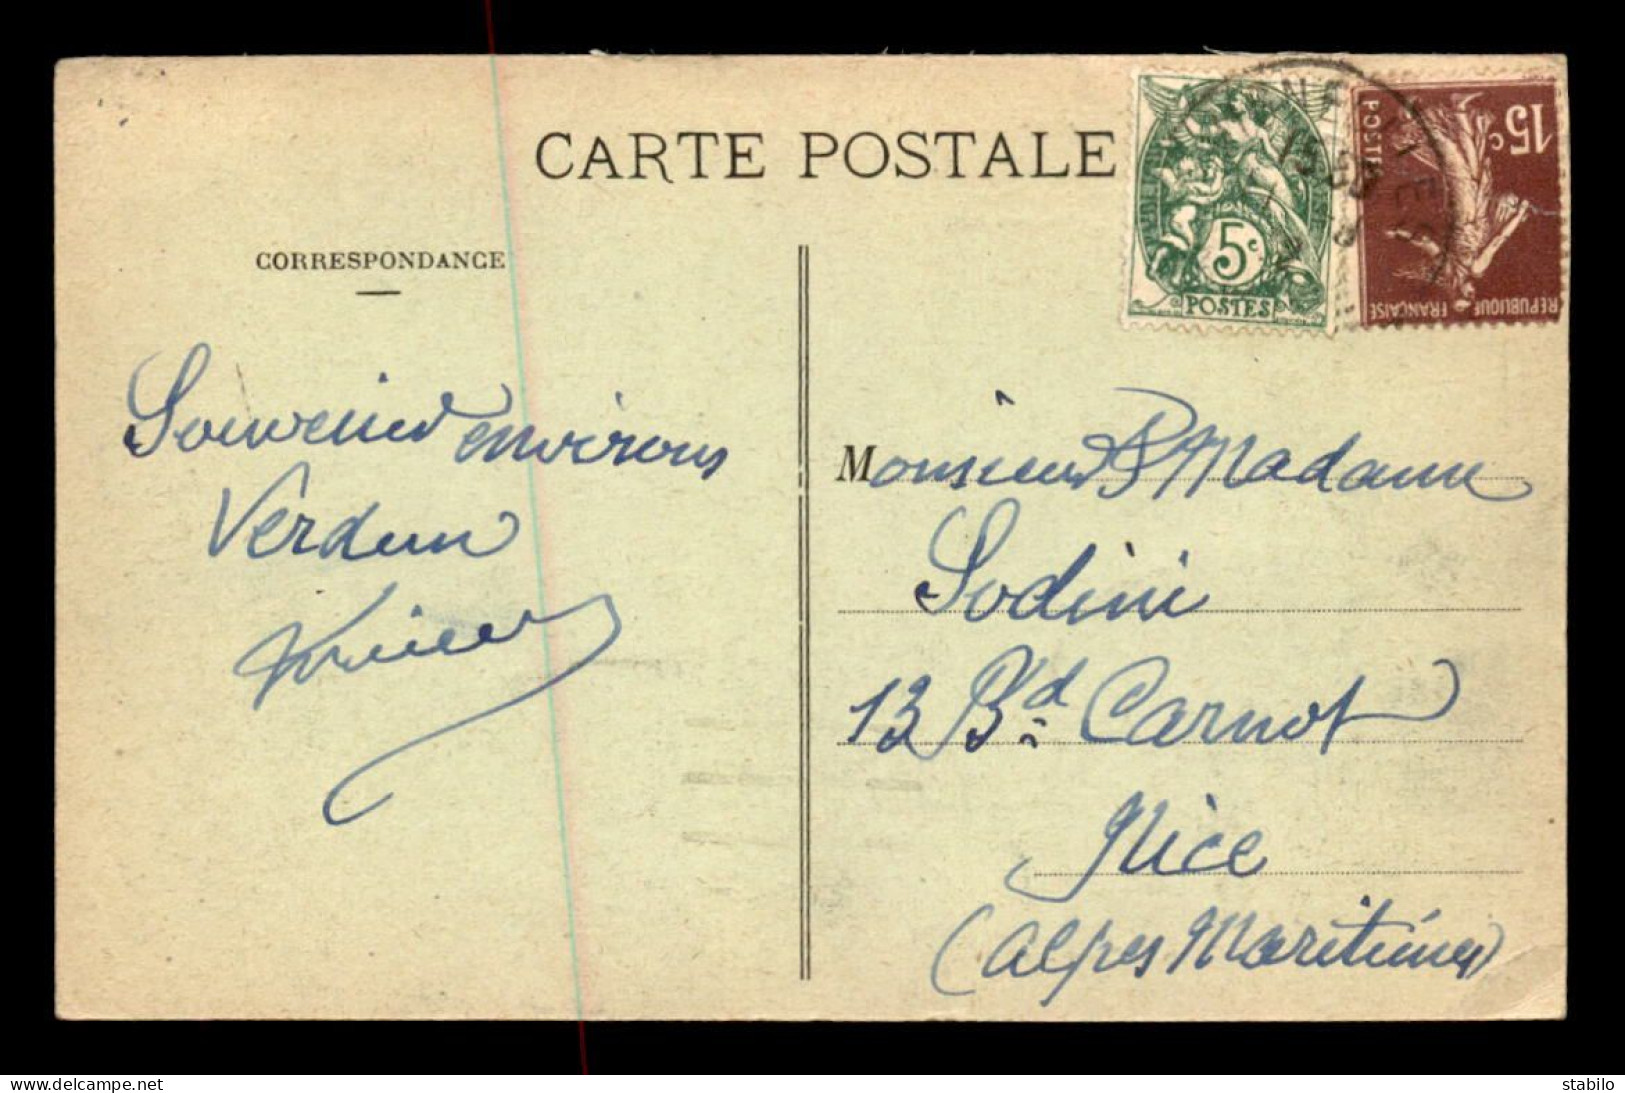 CARTE POSTALE
CORRESPONDANCE
Souvenir environs
Verdun
5c
POSTES
15c
POSTES
REPUBLIQUE FRANÇAISE
15
Monsieur & Madame
Sodini
13 Bd Carnot
Nice
(Alpes Maritimes)
www.delcampe.net
stabilo